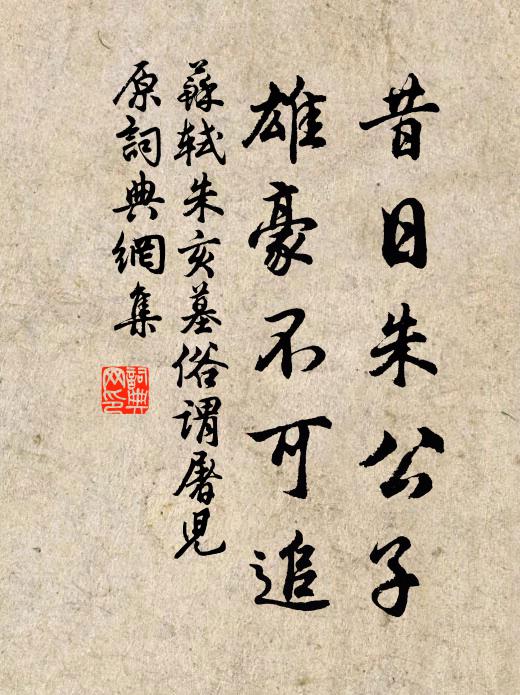 昔日朱公子
雄豪不可追
蘇軾朱亥墓俗謂屠兒
原詞典網集
詞典
网印